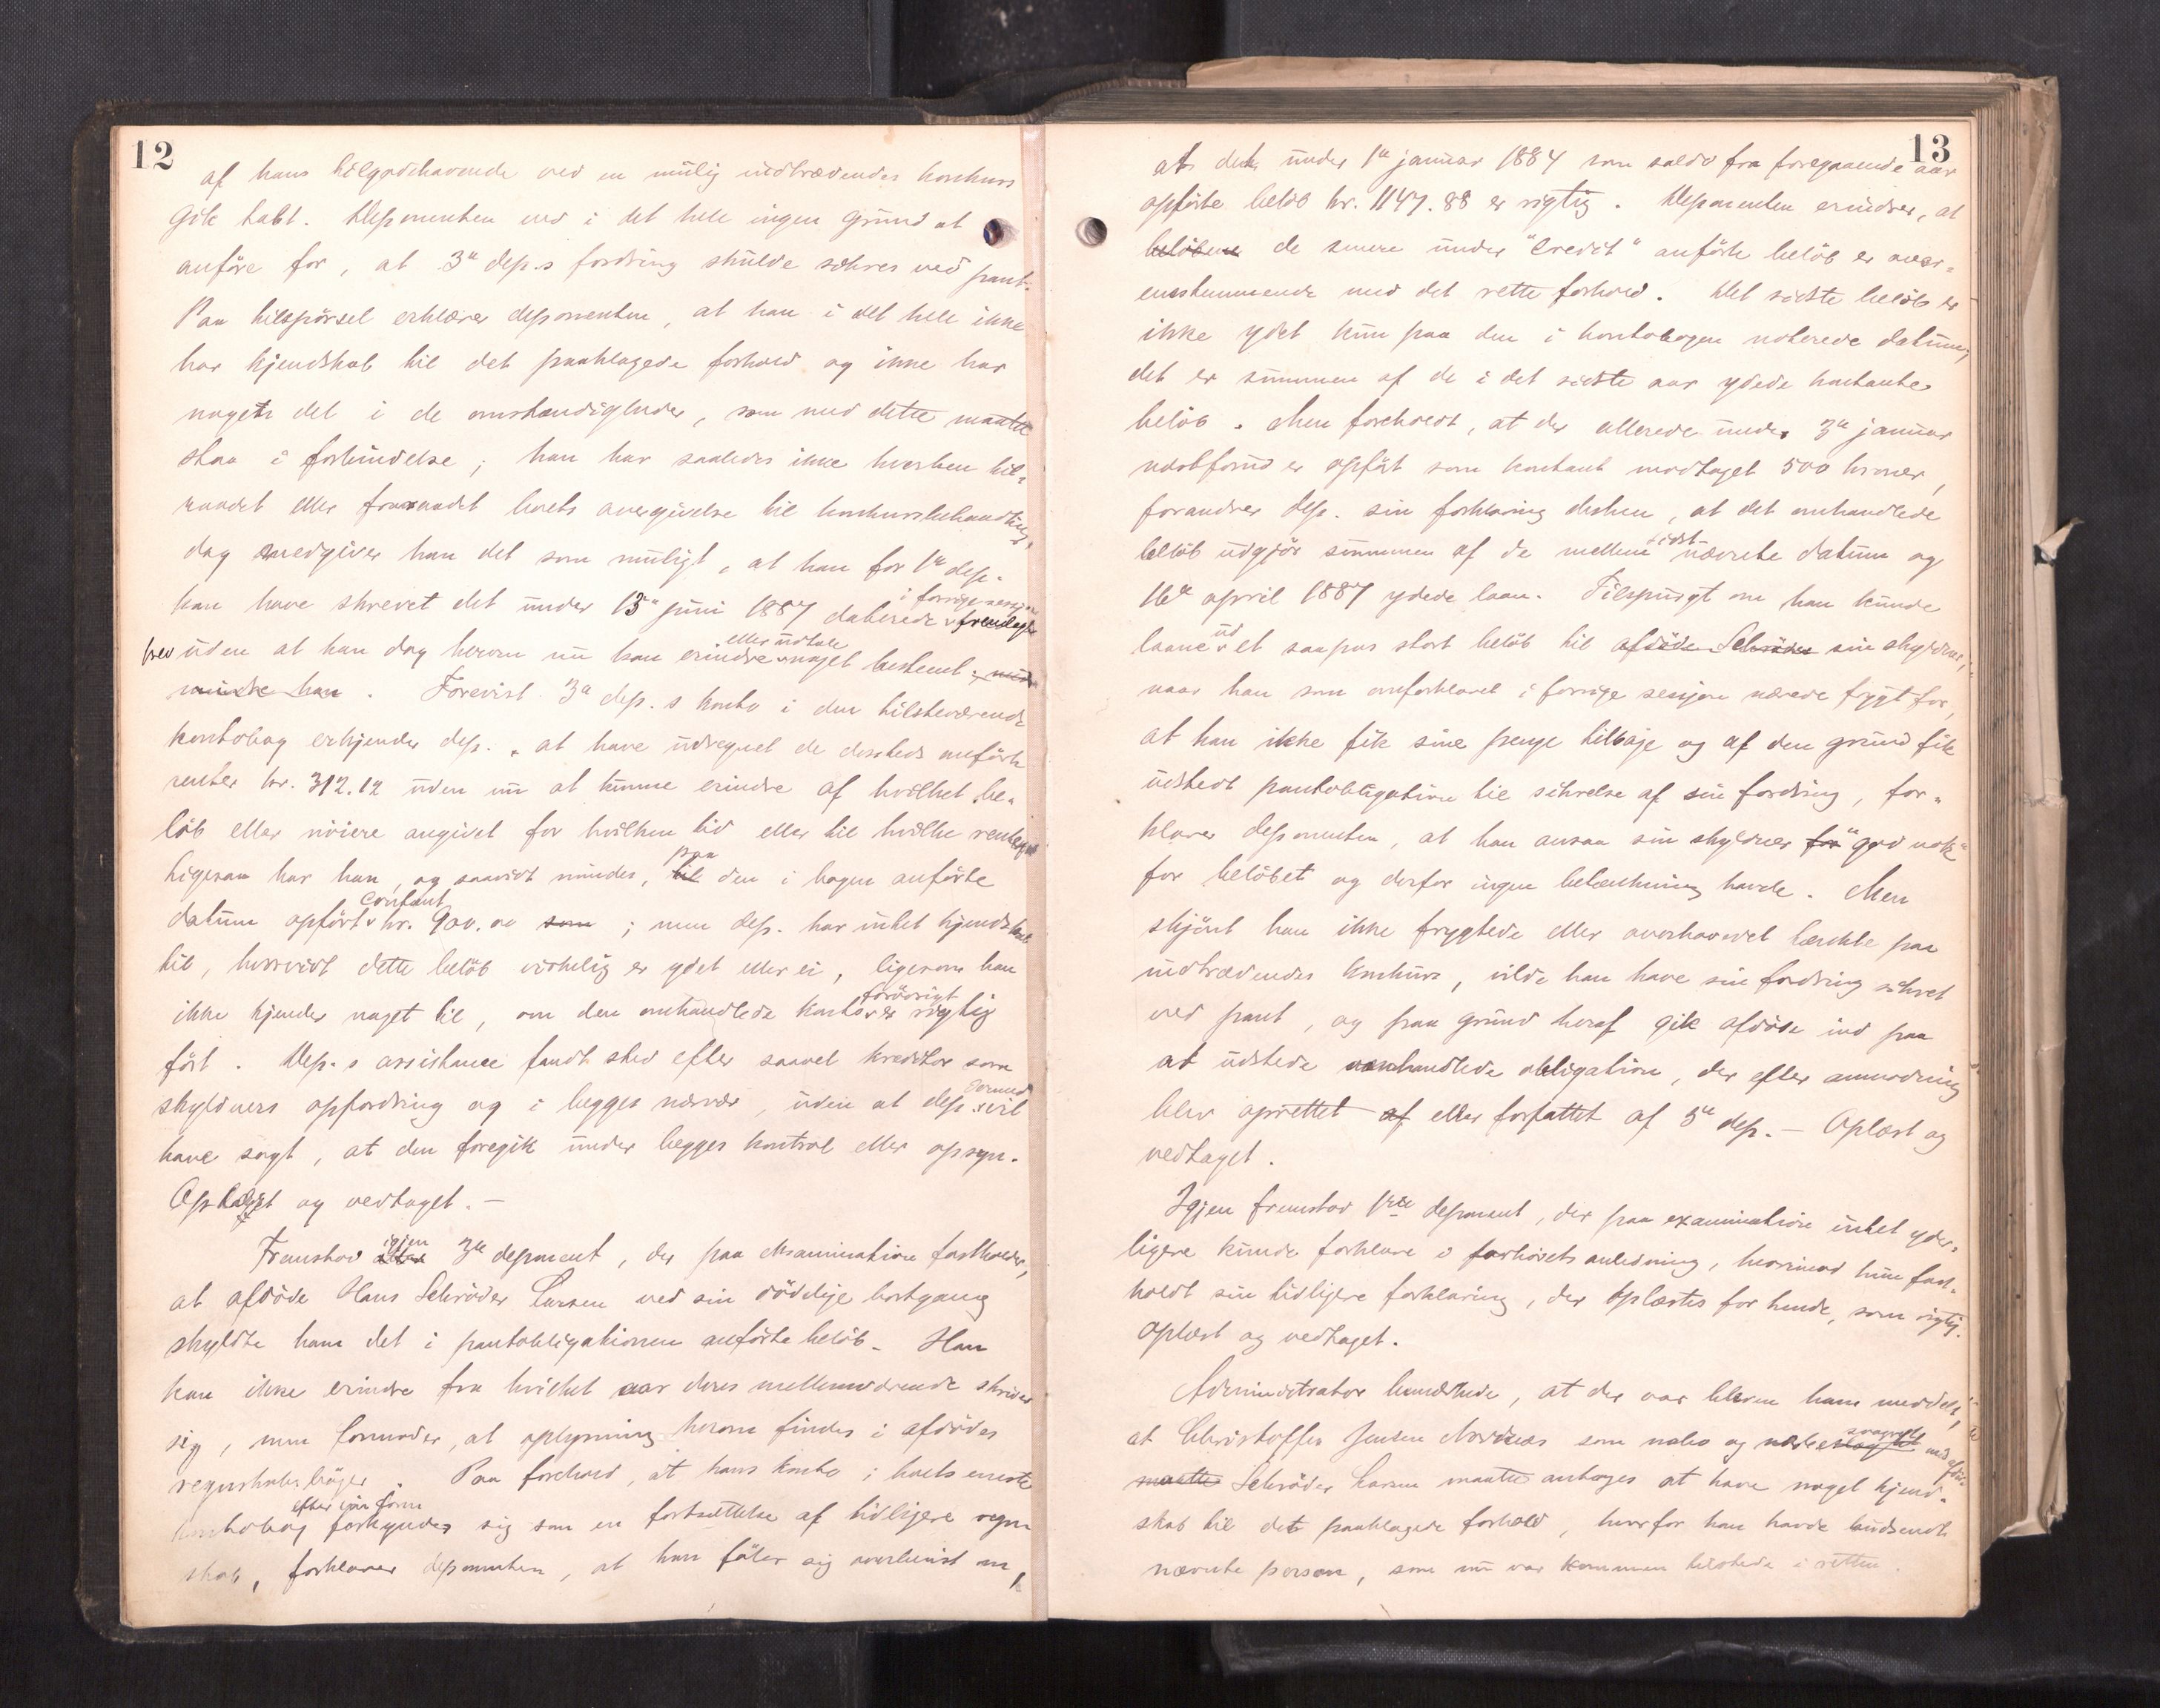 12
af hans tilgodehavende ved en mulig indtrædendes konkurs
gik tabt. Deponenten ved i det hele ingen grund at
anføre for, at 3die dep.s fordring skulde sikres ved pant.
Paa tilspørsel erklærer deponenten, at han i det hele ikke
har kjendskab til det paaklagede forhold og ikke har
nogen del i de omstændigheder, som med dette maatte
staa i forbindelse; han har saaledes ikke hverken til-
raadet eller fraraadet boets overgivelse til konkursbehandling;
dog medgiver han det som muligt, at han for 1ste dep.
kan have skrevet det under 13de juni 1887 daterede i forrige session fremlagte
brev uden at han dog herom nu kan erindre eller udtale noget bestemt.
minder han. Forevist 3die dep.s konto i den tilstedeværende
kontobog erkjender dep., at have udregnet de dersteds anførte
renter kr. 312.12 uden nu at kunne erindre af hvilket be-
løb eller nøiere angivet for hvilken tid eller til hvilke rentefod
Ligesaa har han, og saavidt mindes, til paa den i bogen anførte
datum opført contant kr. 900.00 som ; men dep. har intet kjendskab
til, hvorvidt dette beløb virkelig er ydet eller ei, ligesom han
ikke kjender noget til, om den omhandlede konto forøvrigt er rigtig
ført. Dep.s assistance fandt sted efter saavel kreditor som
skyldners opfordring og i begges nærvær, uden at dep. dermed vil
have sagt, at den foregik under begges kontrol eller opsyn.
Oplæst og vedtaget. –
Fremstod igjen 3die deponent, der paa eksamination fastholder,
at afdøde Hans Schrøder Larsen ved sin dødelige bortgang
skyldte ham det i pantobligationen anførte beløb. Han
kan ikke erindre fra hvilket aar deres mellemværende skriver
sig, men formoder, at oplysning herom findes i afdødes
regnskabsbøger. Paa forehold, at hans konto i boets eneste
kontobog efter sin form forkynder sig som en fortsættelse af tidligere regn-
skab, forklarer deponenten, at han føler sig overbevist om,
13
at det under 1ste januar 1884 som saldo fra foregaaende aar
opførte beløb kr. 1147.88 er rigtig. Deponenten erindrer, at
beløbene de senere under "Credit" anførte beløb er over-
ensstemmende med det rette forhold. Det sidste beløb er
ikke ydet kun paa den i kontobogen noterede datum,
det er summen af de i det sidste aar ydede kontante
beløb. Men foreholdt, at der allerede under 3die januar
nedenforud er opført som kontant modtaget 500 kroner,
forandrer dep. sin forklaring derhen, at det omhandlede
beløb udgjør summen af de mellem sidst nævnte datum og
16de april 1887 ydede laan. Tilspurgt om han kunde
laane ud et saapas stort beløb til afdøde Schrøder sin skyldner,
naar han som omforklaret i forrige session nærede frygt for,
at han ikke fik sine penge tilbage og af den grund fik
udstedt pantobligation til sikrelse af sin fordring, for-
klarer deponenten, at han ansaa sin skyldner for "god nok"
for beløbet og derfor ingen betænkning havde. Men
skjønt han ikke frygtede eller overhovedet tænkte paa
indtrædendes konkurs, vilde han have sin fordring sikret
ved pant, og paa grund heraf gik afdøde ind paa
at udstede omhandlede obligation, der efter anmodning
blev oprettet af eller forfattet af 5te dep. – Oplæst og
vedtaget.
Igjen fremstod 1ste deponent, der paa examination intet yder-
ligere kunde forklare i forhørets anledning, hvorimod hun fast-
holdt sin tidligere forklaring, der oplæstes for hende, som rigtig.
Oplæst og vedtaget.
Administrator bemærkede, at der var bleven ham meddelt,
at Christoffer Jensen Nordnæs som nabo og nærbeslægtet svoger med afdøde
maatte Schrøder Larsen maatte antages at have noget kjend-
skab til det paaklagede forhold, hvorfor han havde budsendt
nævnte person, som nu var kommen tilstede i retten.